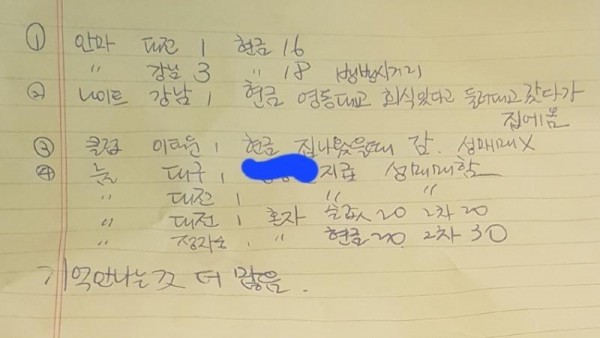 ① 안마 대전 1 현금 16
〃 강남 3 〃 18 뱅뱅사거리
② 나이트 강남 1 현금 영동대교 회식있다고 둘러대고 갔다가
집에옴
③ 클럽 이태원 1 현금 집나왔을때 감. 성매매X
④ 룸 대구 1 지불 성매매함
〃 대전 1 〃 〃
〃 대전 1 혼자 20 2차 20
〃 정자 〃 현금 20. 2차 30
기억안나는것 더 많음.